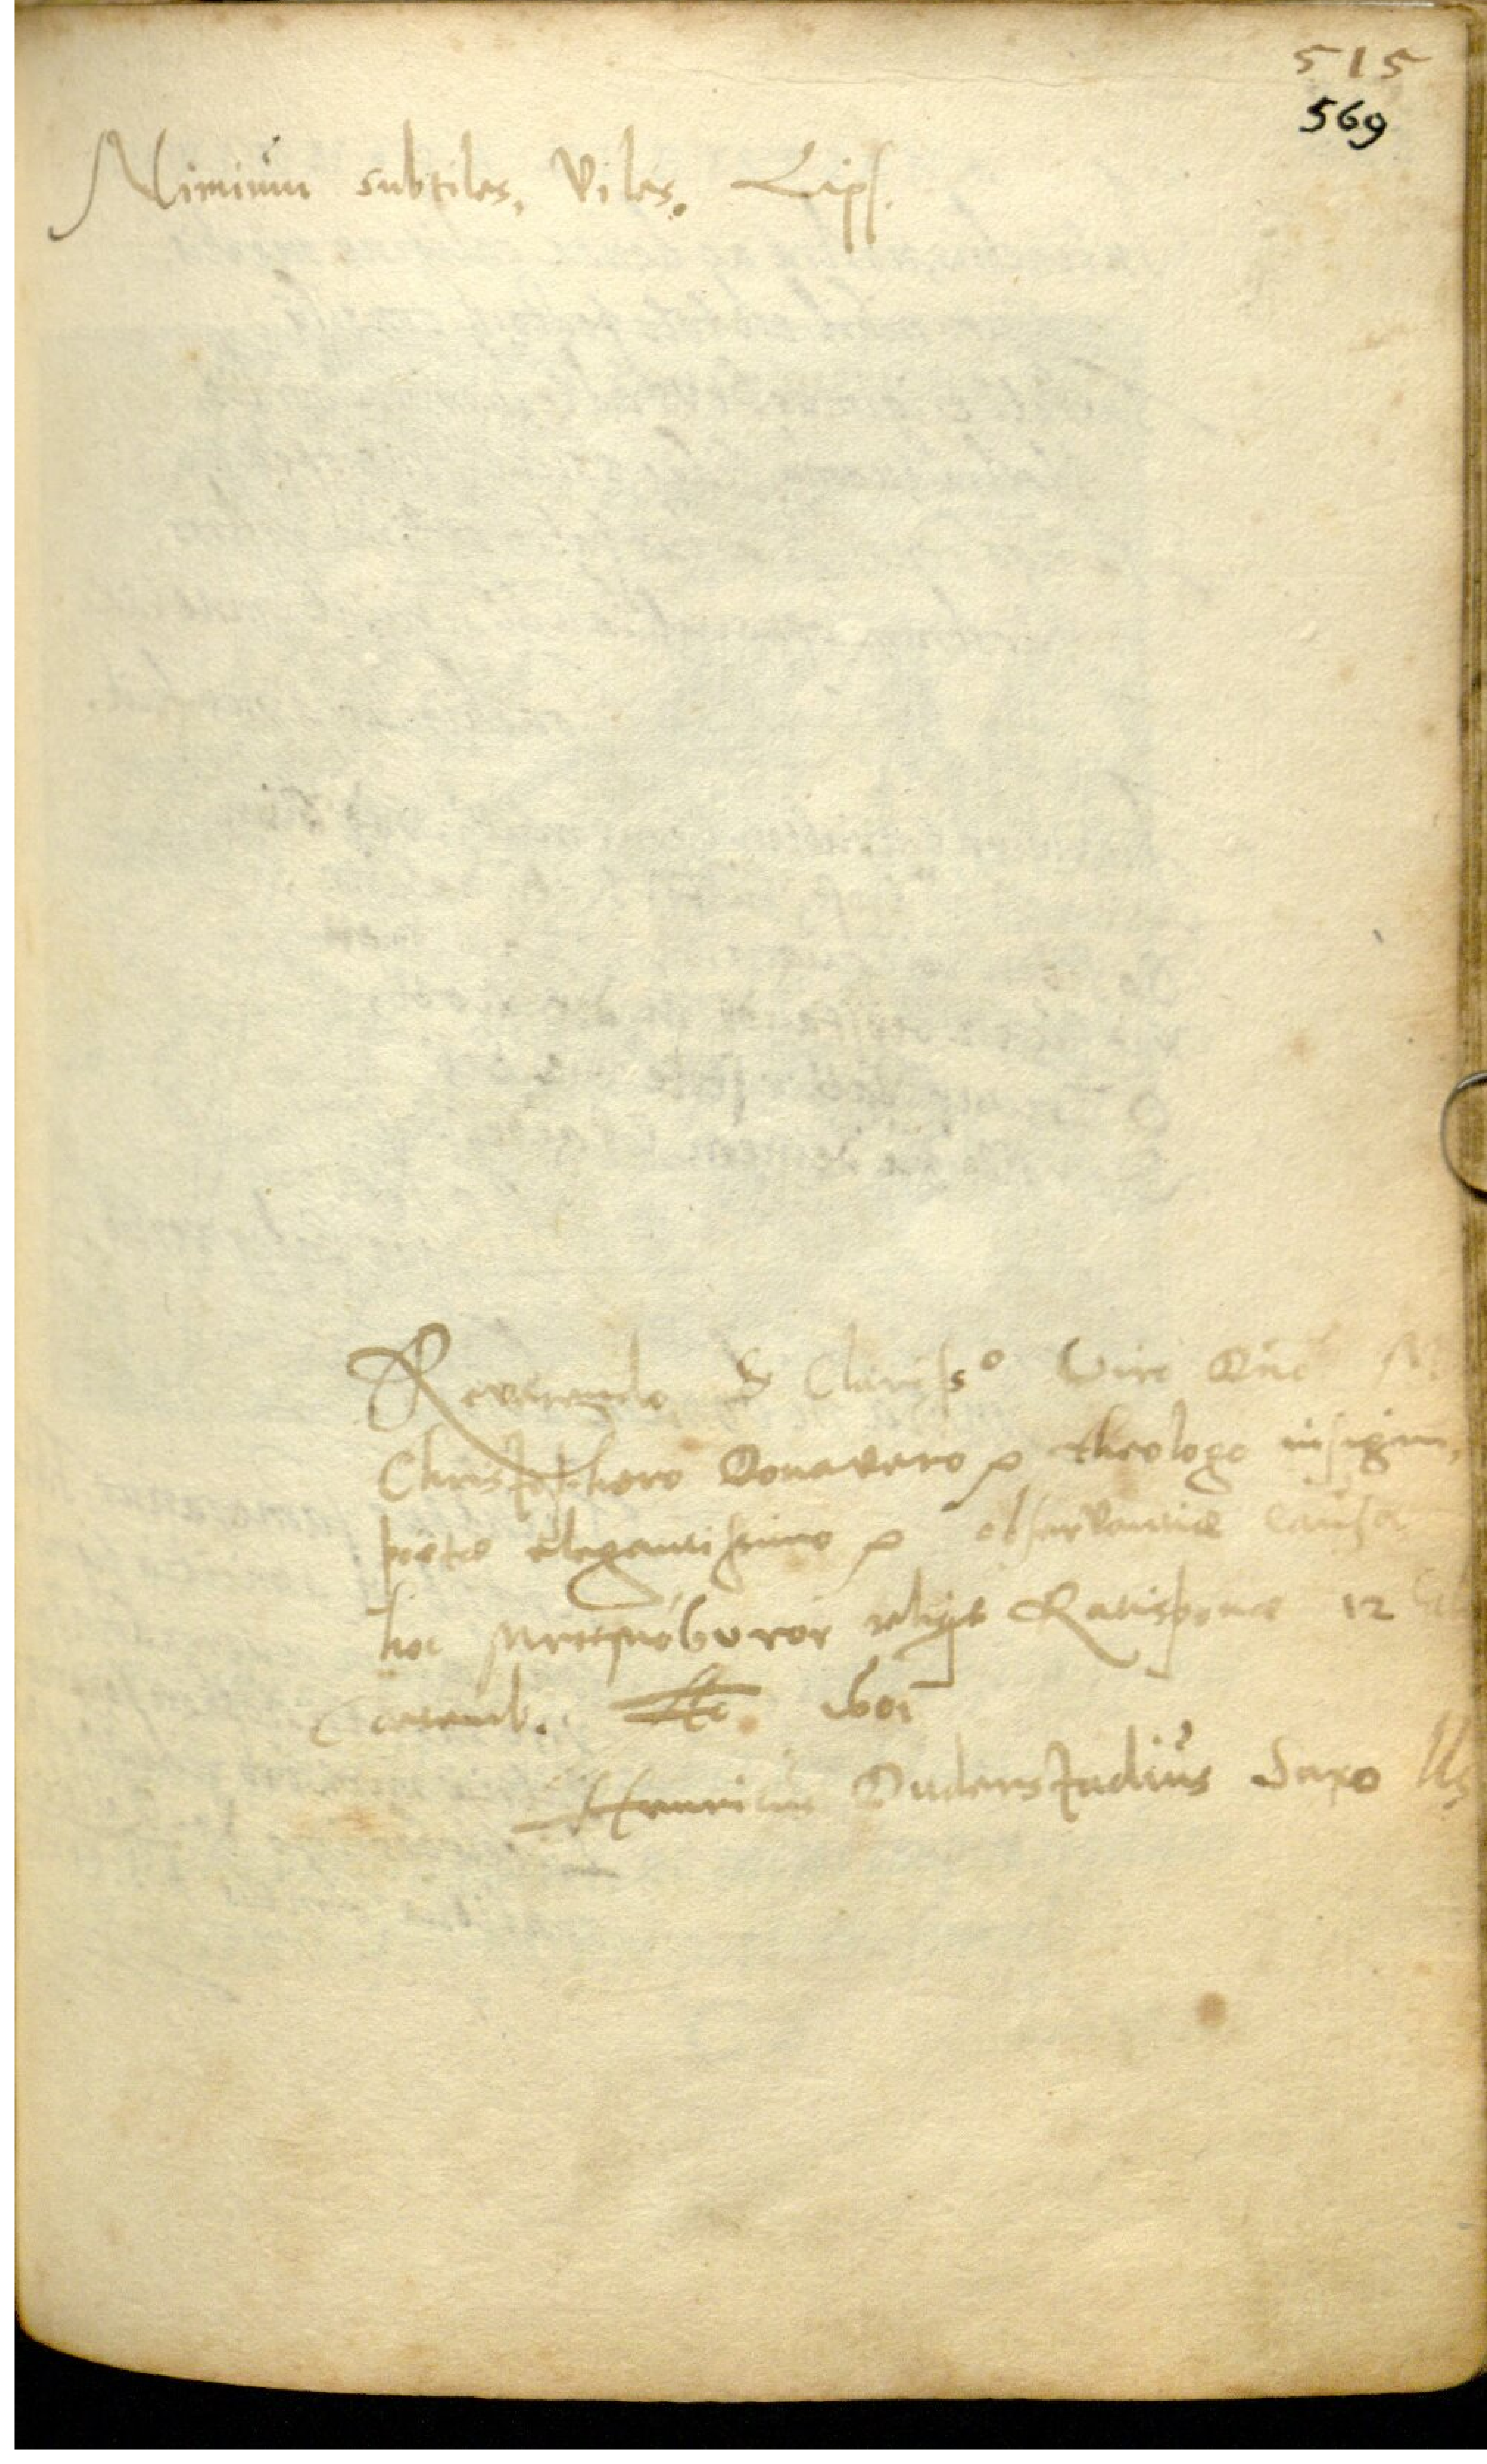 515
569
Nimiùm subtiles, Viles. Lips.
Reverendo & Clariss⁰ Viro Dno M.
Christophero Donavero theologo insigni,
poetæ elegantissimo observantiæ causa
hoc μνημόσυνον reliqit Ratisponæ 12
1601
Henricus Duderstadius Saxo